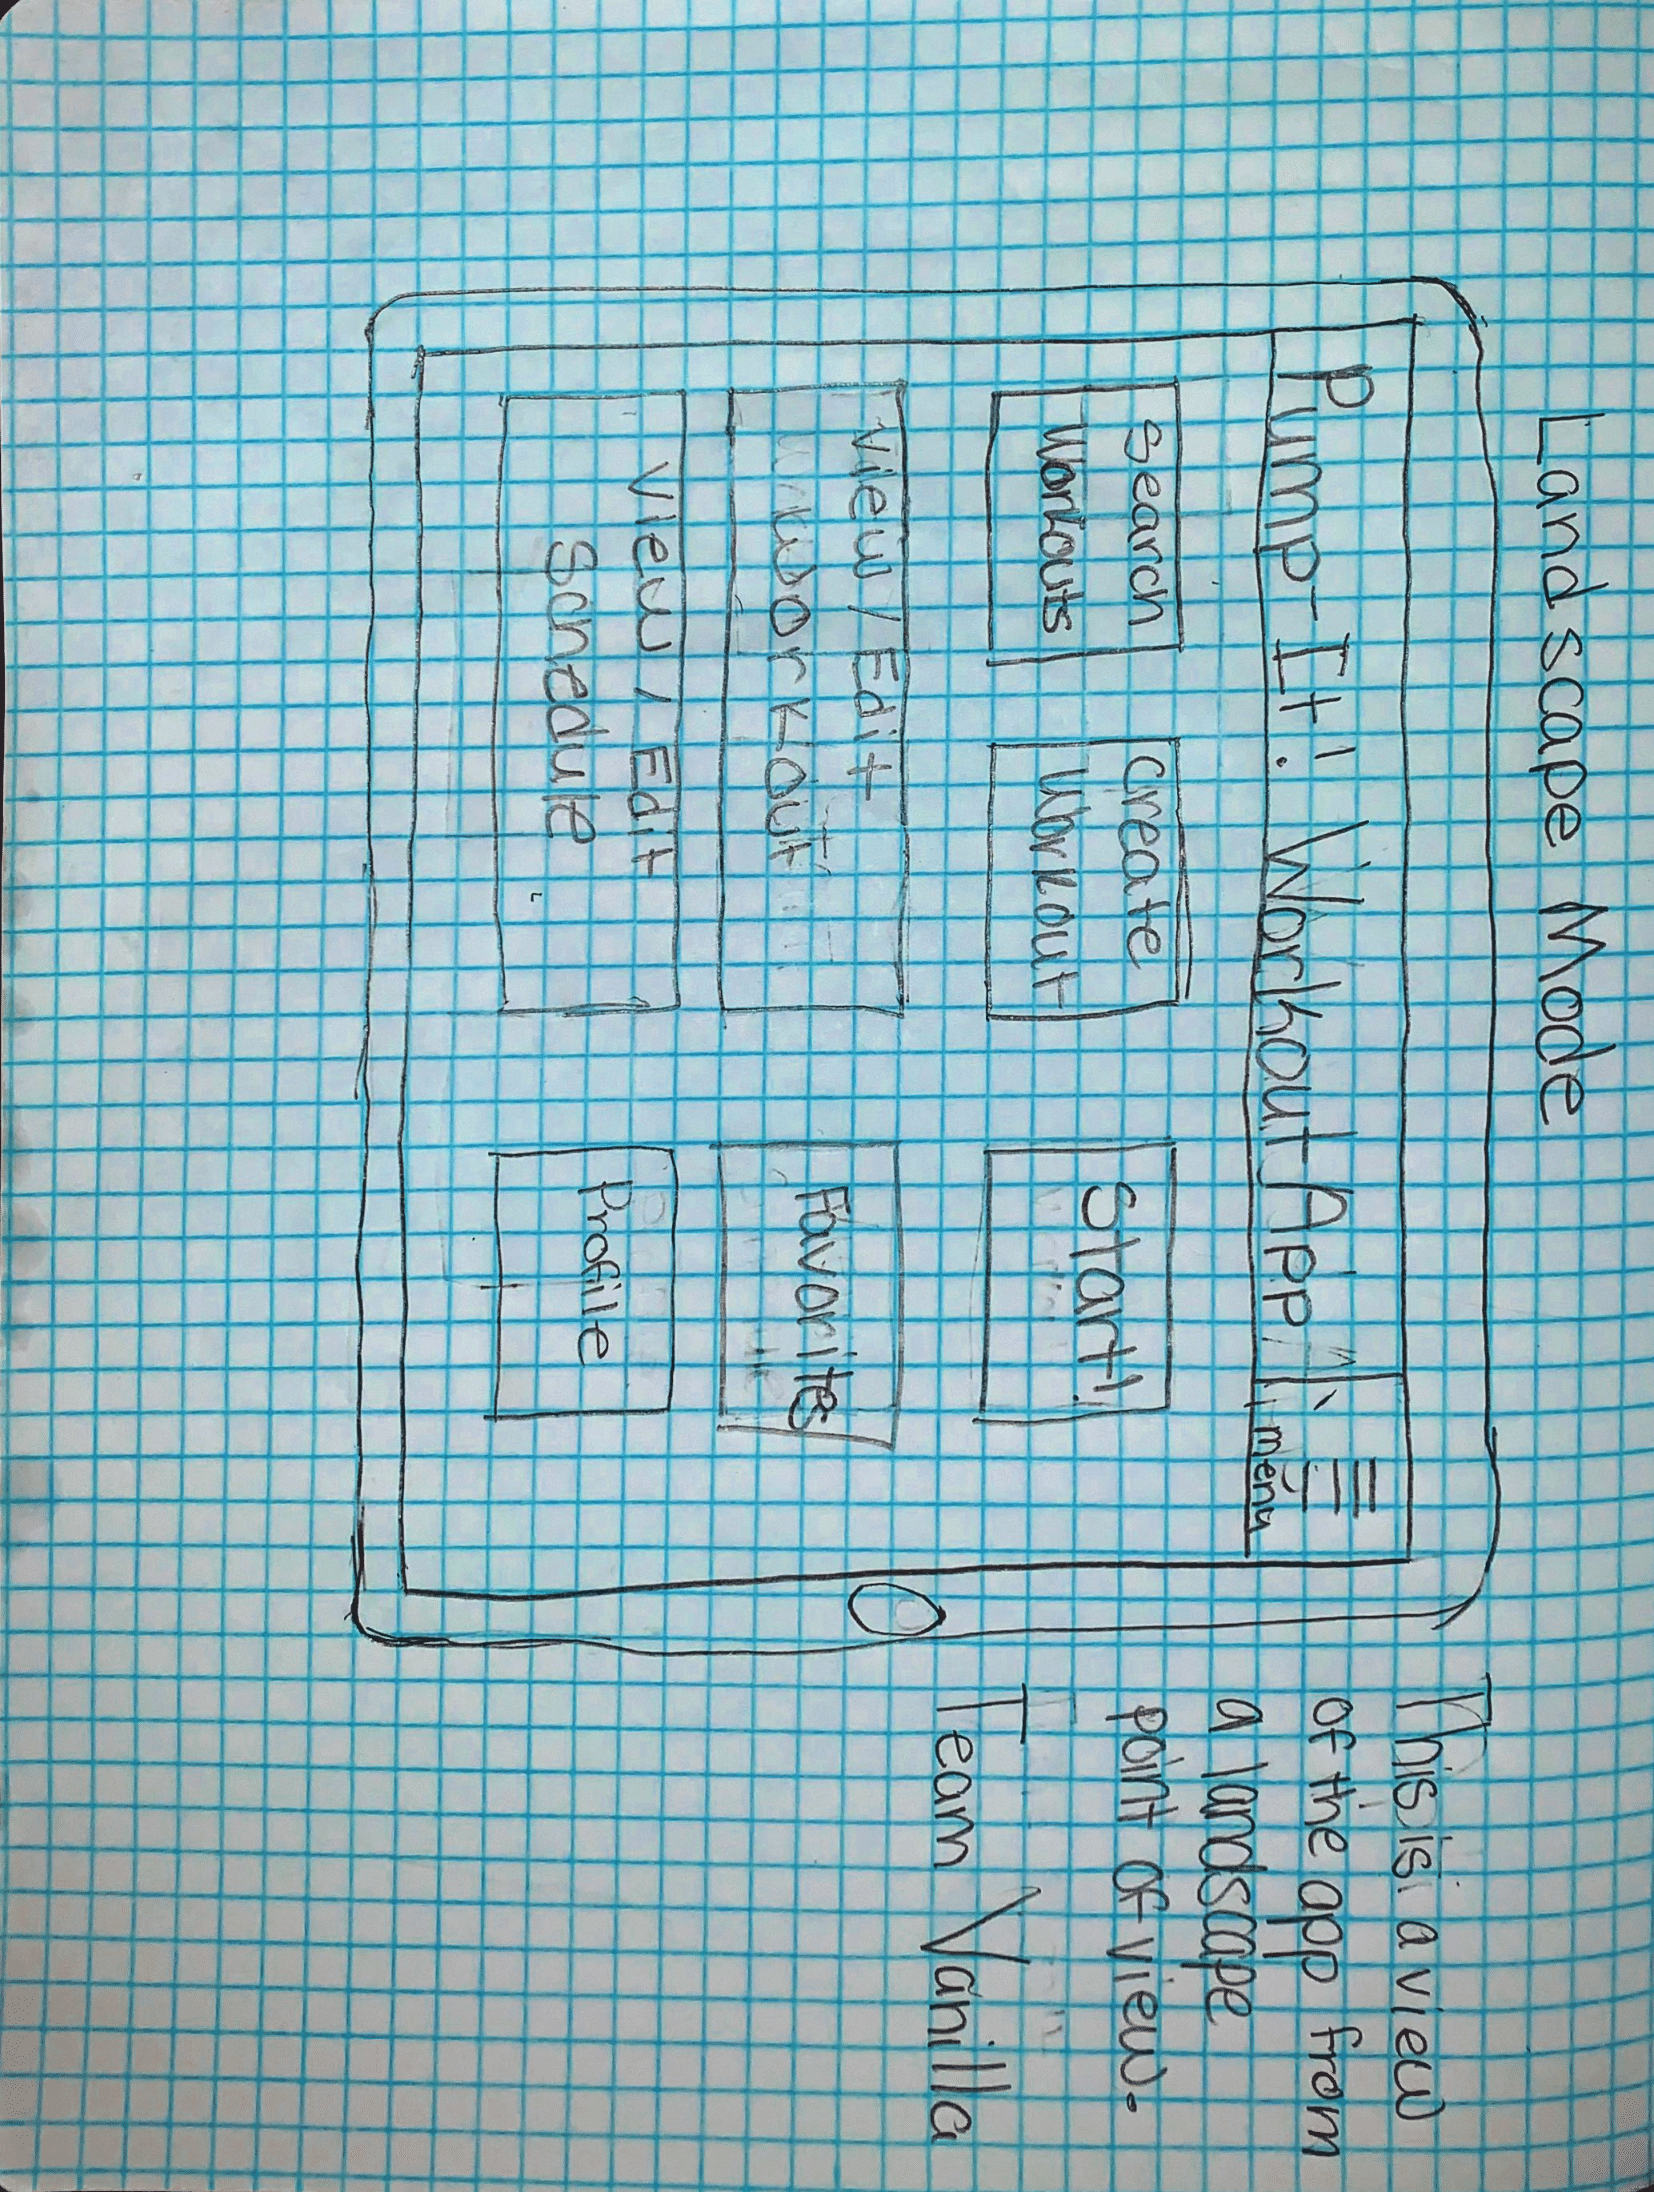 Landscape Mode
Pump-It! Workout App
menu
Search
Workouts
Create
Workout
Start!
View / Edit
Workout
Favorites
View / Edit
Schedule
Profile
This is a view
of the app from
a landscape
point of view.
Team Vanilla